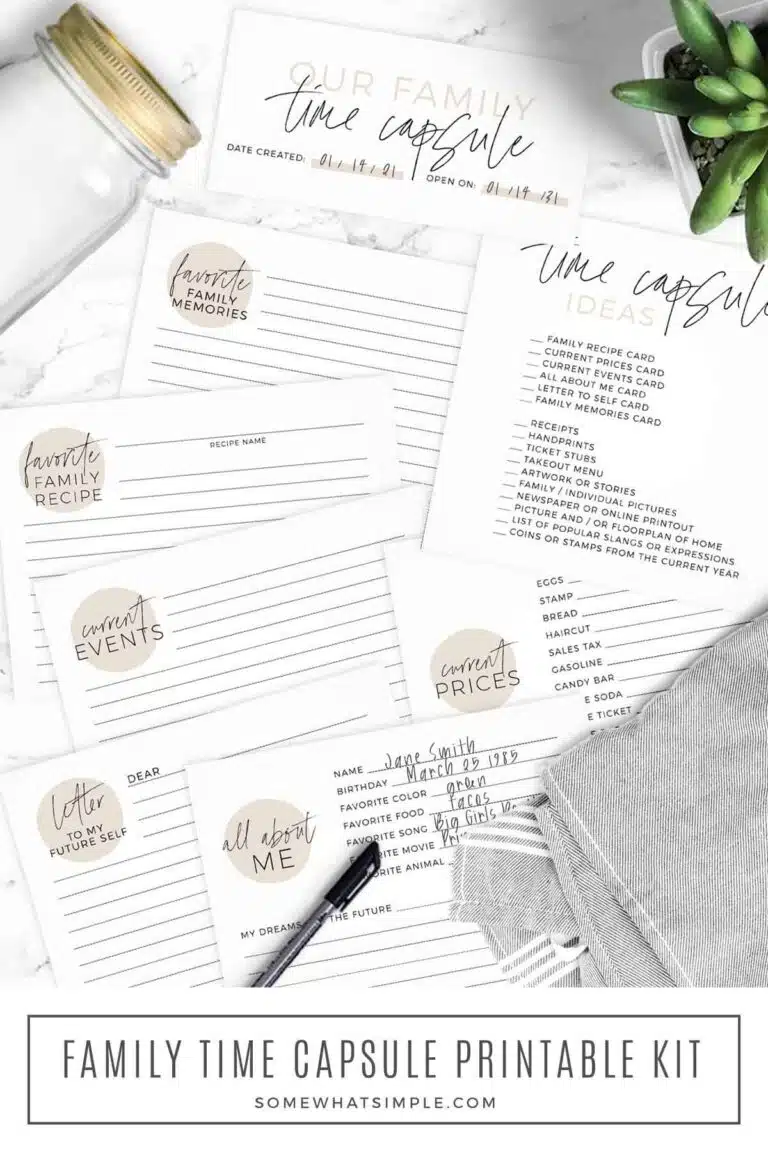 OUR FAMILY
time capsule
DATE CREATED: 01/14/21 OPEN ON: 01/14/31
favorite
FAMILY
MEMORIES
time capsule
IDEAS
__ FAMILY RECIPE CARD
__ CURRENT PRICES CARD
__ CURRENT EVENTS CARD
__ ALL ABOUT ME CARD
__ LETTER TO SELF CARD
__ FAMILY MEMORIES CARD
__ RECEIPTS
__ HANDPRINTS
__ TICKET STUBS
__ TAKEOUT MENU
__ ARTWORK OR STORIES
__ FAMILY / INDIVIDUAL PICTURES
__ NEWSPAPER OR ONLINE PRINTOUT
__ PICTURE AND / OR FLOORPLAN OF HOME
__ LIST OF POPULAR SLANGS OR EXPRESSIONS
__ COINS OR STAMPS FROM THE CURRENT YEAR
favorite
FAMILY
RECIPE
RECIPE NAME
current
EVENTS
current
PRICES
EGGS
STAMP
BREAD
HAIRCUT
SALES TAX
GASOLINE
CANDY BAR
E SODA
E TICKET
letter
TO MY
FUTURE SELF
DEAR
all about
ME
NAME Jane Smith
BIRTHDAY March 25 1985
FAVORITE COLOR green
FAVORITE FOOD tacos
FAVORITE SONG Big Girls
RITE MOVIE
ORITE ANIMAL
MY DREAMS THE FUTURE
FAMILY TIME CAPSULE PRINTABLE KIT
SOMEWHATSIMPLE.COM